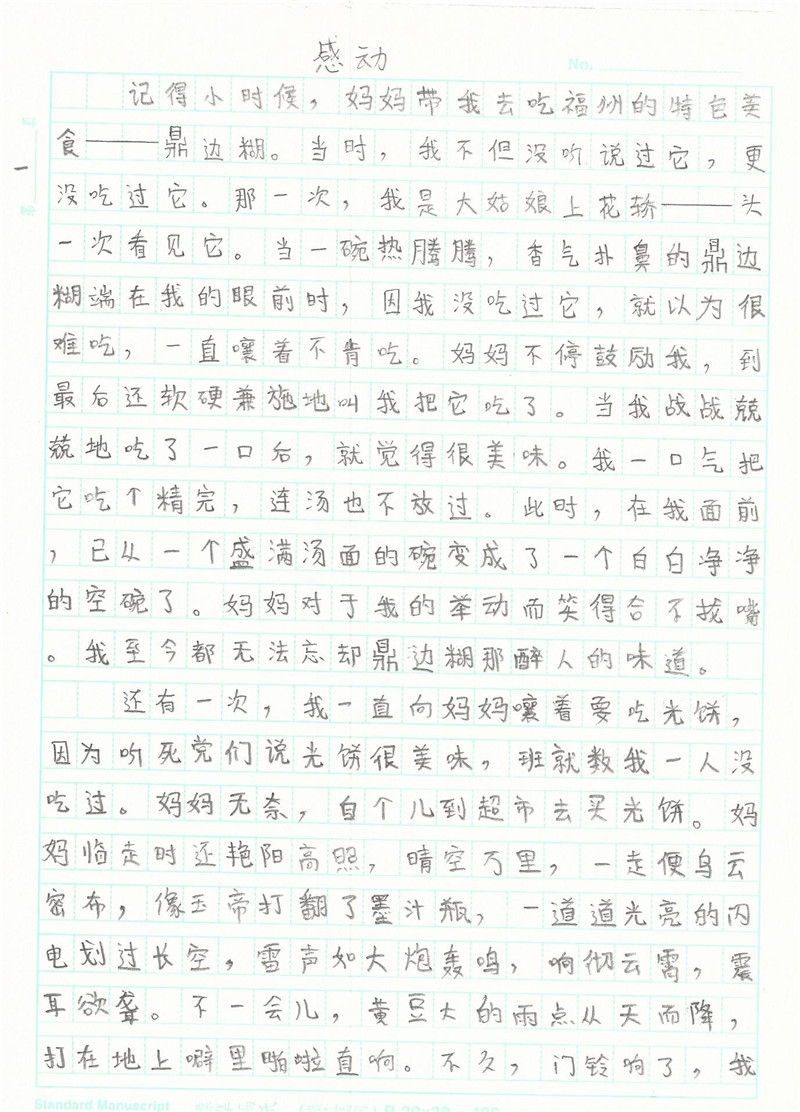 感动
No.
记得小时候，妈妈带我去吃福州的特色美
食——鼎边糊。当时，我不但没听说过它，更
没吃过它。那一次，我是大姑娘上花轿——头
一次看见它。当一碗热腾腾，香气扑鼻的鼎边
糊端在我的眼前时，因我没吃过它，就以为很
难吃，一直嚷着不肯吃。妈妈不停鼓励我，到
最后还软硬兼施地叫我把它吃了。当我战战兢
兢地吃了一口后，就觉得很美味。我一口气把
它吃个精完，连汤也不放过。此时，在我面前
，已从一个盛满汤面的碗变成了一个白白净净
的空碗了。妈妈对于我的举动而笑得合不拢嘴
。我至今都无法忘却鼎边糊那醉人的味道。
还有一次，我一直向妈妈嚷着要吃光饼，
因为听死党们说光饼很美味，班就数我一人没
吃过。妈妈无奈，自个儿到超市去买光饼。妈
妈临走时还艳阳高照，晴空万里，一走便乌云
密布，像玉帝打翻了墨汁瓶，一道道光亮的闪
电划过长空，雷声如大炮轰鸣，响彻云霄，震
耳欲聋。不一会儿，黄豆大的雨点从天而降，
打在地上噼里啪啦直响。不久，门铃响了，我
Standard Manuscript